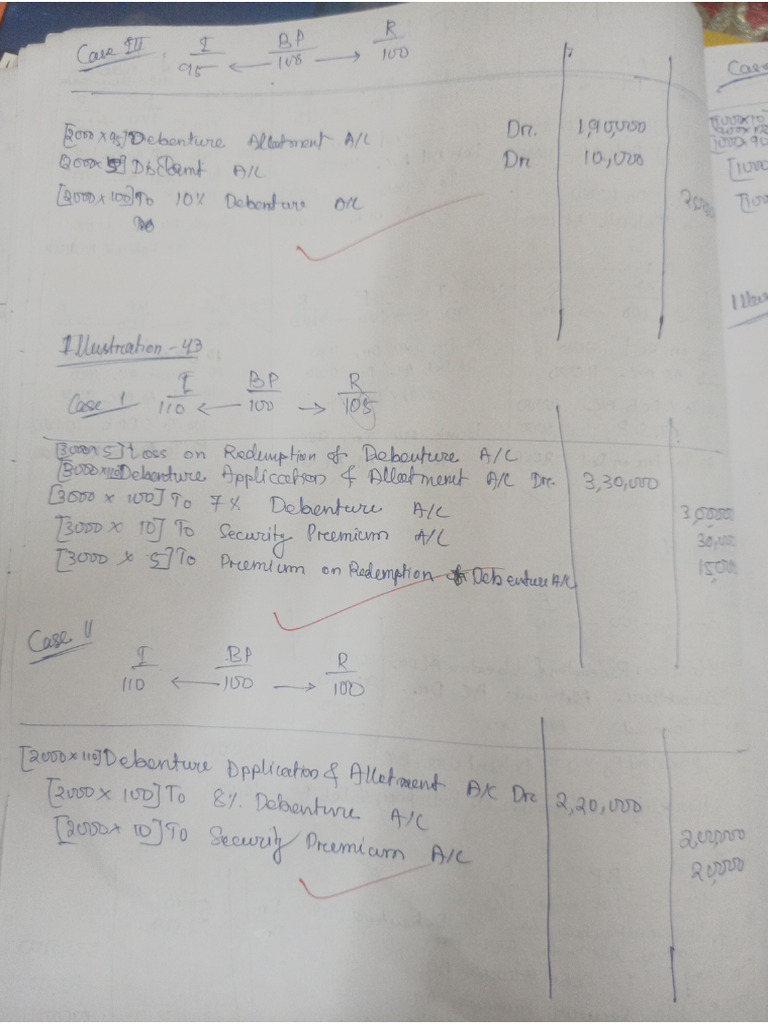 Case III   I   BP   R
95 ← 100 → 100
[2000 x 95] Debenture Allotment A/C Dr. 1,90,000
[2000 x 5] A/C Dr 10,000
[2000 x 100] To 10% Debenture A/C
Illustration - 43
I   BP   R
Case 1   110 ← 100 → 105
[3000 x 5] Loss on Redemption of Debenture A/C
[3000 x 110] Debenture Application & Allotment A/C Dr. 3,30,000
[3000 x 100] To 7% Debenture A/C
[3000 x 10] To Security Premium A/C 30,000
[3000 x 5] To Premium on Redemption of Debenture A/C 15,000
Case II
I   BP   R
110 ← 100 → 100
[2000 x 110] Debenture Application & Allotment A/C Dr. 2,20,000
[2000 x 100] To 8% Debenture A/C 2,00,000
[2000 x 10] To Security Premium A/C 20,000
Case
[1000